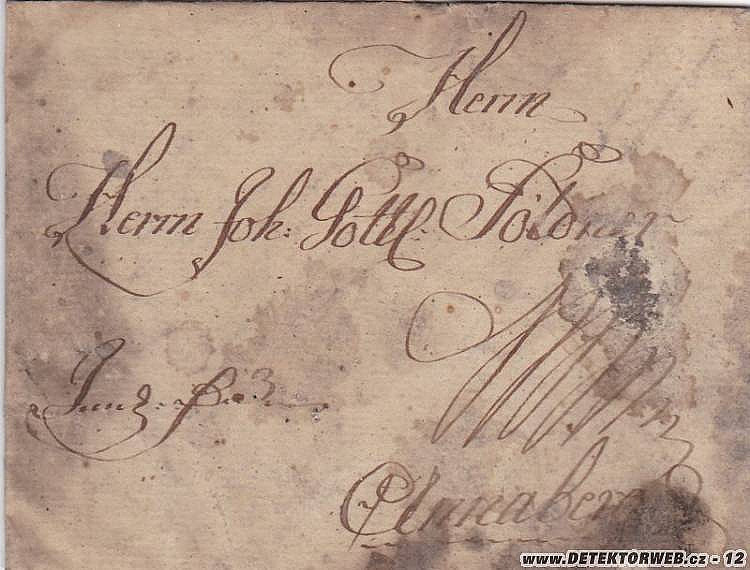 Herrn
Herrn Joh: Gottl: Földner
Annaberg
www.DETEKTORWEB.cz - 12